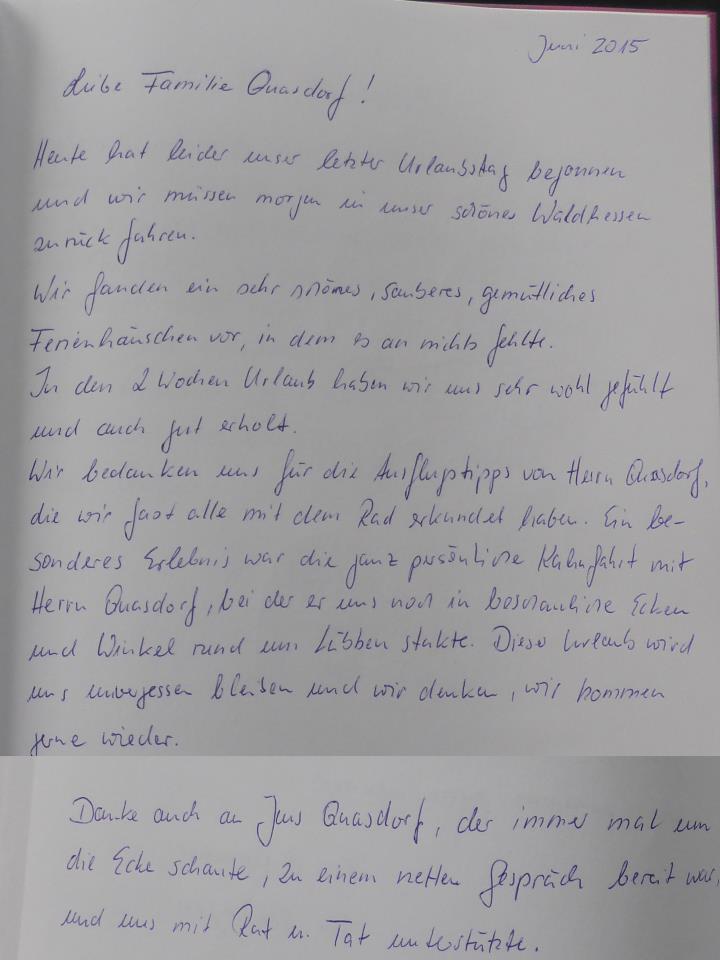 Juni 2015
Liebe Familie Quasdorf!
Heute hat leider unser letzter Urlaubstag begonnen
und wir müssen morgen in unser schönes Waldhessen
zurück fahren.
Wir fanden ein sehr schönes, sauberes, gemütliches
Ferienhäuschen vor, in dem es an nichts fehlte.
In den 2 Wochen Urlaub haben wir uns sehr wohl gefühlt
und auch gut erholt.
Wir bedanken uns für die Ausflugtipps von Herrn Quasdorf,
die wir fast alle mit dem Rad erkundet haben. Ein be-
sonderes Erlebnis war die ganz persönliche Kahnfahrt mit
Herrn Quasdorf, bei der er uns noch in beschauliche Ecken
und Winkel rund um Lübben stakte. Dieser Urlaub wird
uns unvergessen bleiben und wir denken, wir kommen
gerne wieder.
Danke auch an Jens Quasdorf, der immer mal um
die Ecke schaute, zu einem netten Gespräch bereit war,
und uns mit Rat u. Tat unterstützte.